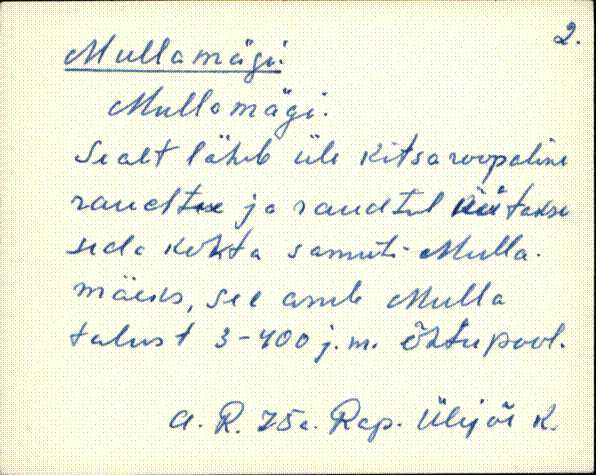 2.
Mullamägi.
Mullamägi.
Sealt läheb üle kitsaroopaline
raudtee ja raudtel hüütakse
seda kohta samuti Mulla-
mäeks, see asub Mulla
talust 3-400 j.m. õhtupool.
A. R. 75a. Rap. Ülejõe k.